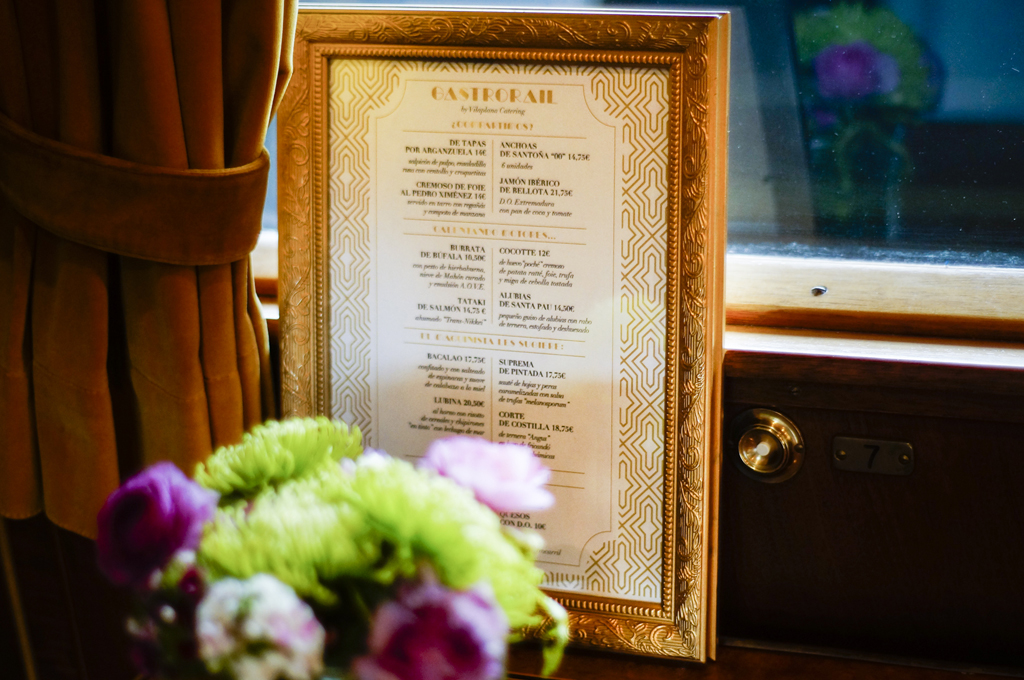 GASTRORAIL
by Vilaplana Catering
¿COMPARTIMOS?
DE TAPAS
POR ARGANZUELA 14€
salpicón de pulpo, ensaladilla
rusa con ventresca y croquetitas
CREMOSO DE FOIE
AL PEDRO XIMÉNEZ 14€
servido en tarro con regañás
y compota de manzana
ANCHOAS
DE SANTOÑA "00" 14,75€
6 unidades
JAMÓN IBÉRICO
DE BELLOTA 21,75€
D.O. Extremadura
con pan de coca y tomate
CALENTANDO MOTORES...
BURRATA
DE BÚFALA 10,50€
con pesto de hierbabuena,
nieve de Mahón curado
y emulsión A.O.V.E.
TATAKI
DE SALMÓN 14,75 €
ahumado "Trans-Nikkei"
COCOTTE 12€
de huevo "poché" cremoso
de patata ratté, foie, trufa
y miga de cebolla tostada
ALUBIAS
DE SANTA PAU 14,50€
pequeño guiso de alubias con rabo
de ternera, estofado y deshuesado
EL MAQUINISTA LES SUGIERE:
BACALAO 17,75€
confitado y con salteado
de espinacas y suave
de calabaza a la miel
LUBINA 20,50€
al horno con risoto
de cereales y chipirones
"en tinta" con lechuga de mar
SUPREMA
DE PINTADA 17,75€
sauté de hojas y peras
caramelizadas con salsa
de trufas "melanosporum"
CORTE
DE COSTILLA 18,75€
de ternera "Angus"
fricandó
QUESOS
CON D.O. 10€
7